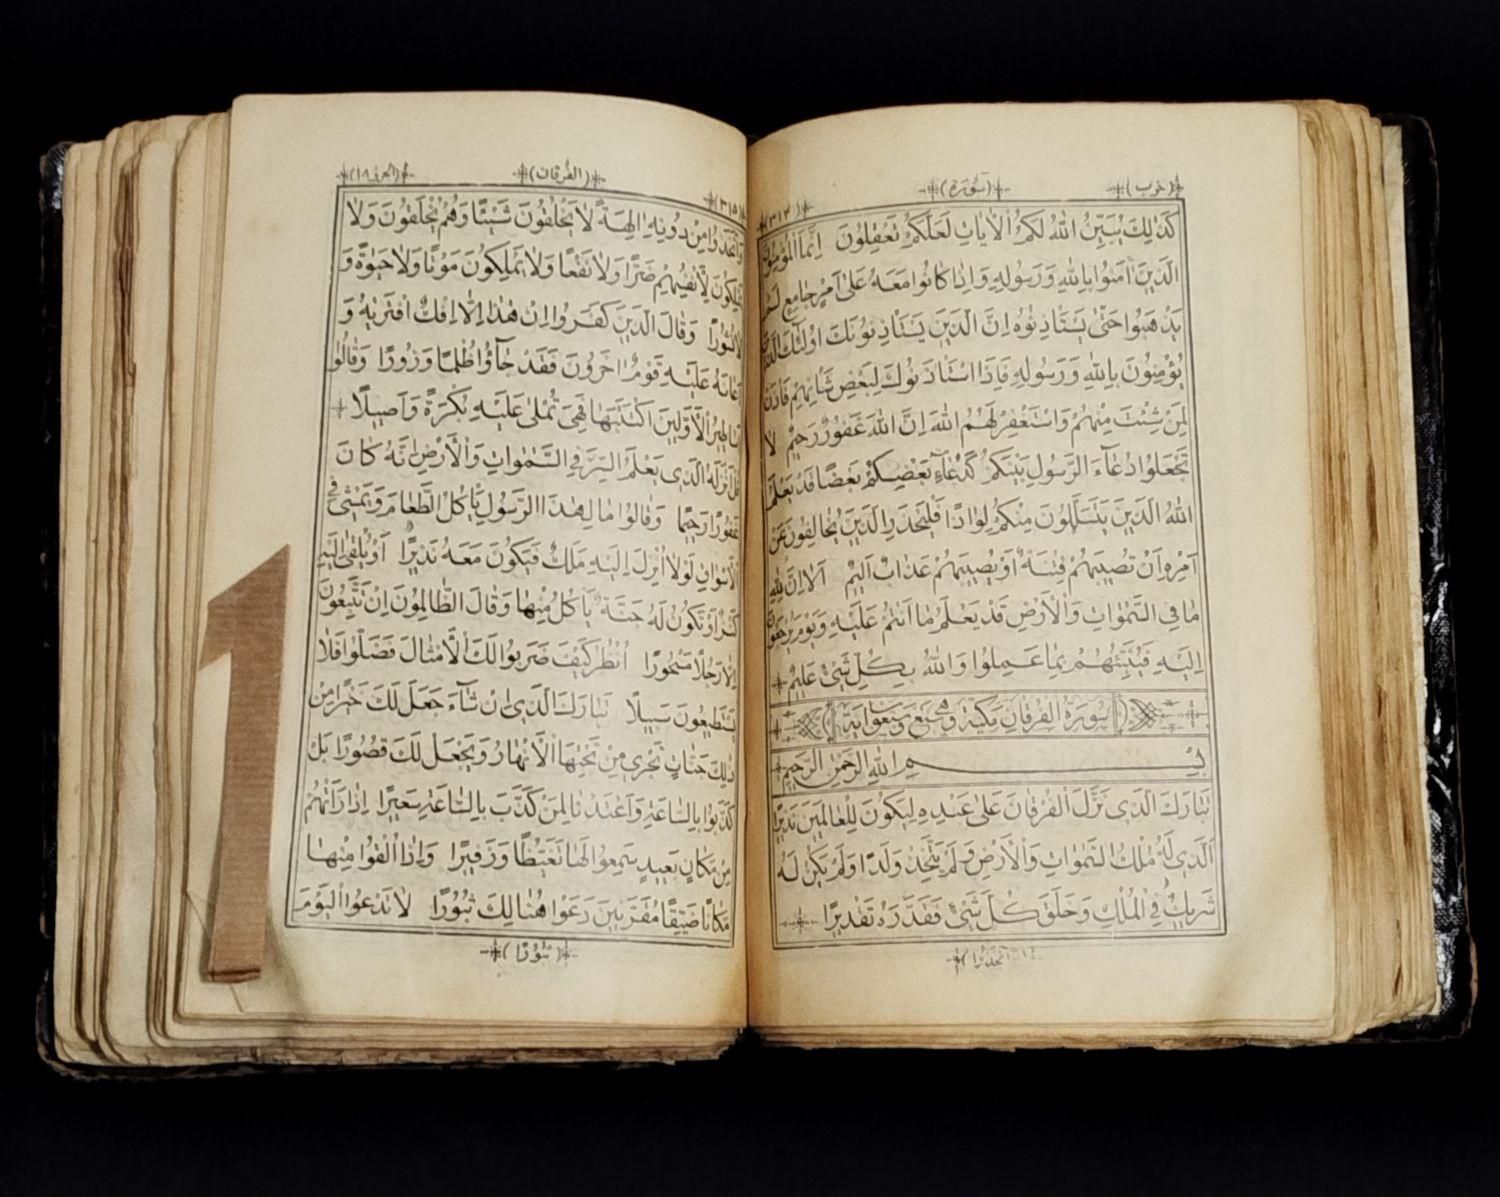 (حزب)
(سورة)
(٣١٤)
كَذٰلِكَ يُبَيِّنُ اللّٰهُ لَكُمُ الْاٰيَاتِ لَعَلَّكُمْ تَعْقِلُونَ اِنَّمَا الْمُؤْمِنُونَ
الَّذِينَ اٰمَنُوا بِاللّٰهِ وَرَسُولِهِ وَاِذَا كَانُوا مَعَهُ عَلٰى اَمْرٍ جَامِعٍ لَمْ
يَذْهَبُوا حَتّٰى يَسْتَاْذِنُوهُ اِنَّ الَّذِينَ يَسْتَاْذِنُونَكَ اُولٰٓئِكَ الَّذِينَ
يُؤْمِنُونَ بِاللّٰهِ وَرَسُولِهِ فَاِذَا اسْتَاْذَنُوكَ لِبَعْضِ شَاْنِهِمْ فَاْذَنْ
لِمَنْ شِئْتَ مِنْهُمْ وَاسْتَغْفِرْ لَهُمُ اللّٰهَ اِنَّ اللّٰهَ غَفُورٌ رَحِيمٌ لَا
تَجْعَلُوا دُعَاءَ الرَّسُولِ بَيْنَكُمْ كَدُعَاءِ بَعْضِكُمْ بَعْضًا قَدْ يَعْلَمُ
اللّٰهُ الَّذِينَ يَتَسَلَّلُونَ مِنْكُمْ لِوَاذًا فَلْيَحْذَرِ الَّذِينَ يُخَالِفُونَ عَنْ
اَمْرِهِ اَنْ تُصِيبَهُمْ فِتْنَةٌ اَوْ يُصِيبَهُمْ عَذَابٌ اَلِيمٌ اَلَا اِنَّ لِلّٰهِ
مَا فِي السَّمٰوَاتِ وَالْاَرْضِ قَدْ يَعْلَمُ مَا اَنْتُمْ عَلَيْهِ وَيَوْمَ يُرْجَعُونَ
اِلَيْهِ فَيُنَبِّئُهُمْ بِمَا عَمِلُوا وَاللّٰهُ بِكُلِّ شَيْءٍ عَلِيمٌ
سورة الفرقان مكية وهي سبع وسبعون اية
بِسْمِ اللّٰهِ الرَّحْمٰنِ الرَّحِيمِ
تَبَارَكَ الَّذِي نَزَّلَ الْفُرْقَانَ عَلٰى عَبْدِهِ لِيَكُونَ لِلْعَالَمِينَ نَذِيرًا
الَّذِي لَهُ مُلْكُ السَّمٰوَاتِ وَالْاَرْضِ وَلَمْ يَتَّخِذْ وَلَدًا وَلَمْ يَكُنْ لَهُ
شَرِيكٌ فِي الْمُلْكِ وَخَلَقَ كُلَّ شَيْءٍ فَقَدَّرَهُ تَقْدِيرًا
(٣١٥)
(الفرقان)
(الجزء ١٨)
وَاتَّخَذُوا مِنْ دُونِهِ اٰلِهَةً لَا يَخْلُقُونَ شَيْئًا وَهُمْ يُخْلَقُونَ وَلَا
يَمْلِكُونَ لِاَنْفُسِهِمْ ضَرًّا وَلَا نَفْعًا وَلَا يَمْلِكُونَ مَوْتًا وَلَا حَيٰوةً وَ
لَا نُشُورًا وَقَالَ الَّذِينَ كَفَرُوا اِنْ هٰذَا اِلَّا اِفْكٌ افْتَرٰيهُ وَ
اَعَانَهُ عَلَيْهِ قَوْمٌ اٰخَرُونَ فَقَدْ جَاؤُ ظُلْمًا وَزُورًا وَقَالُوا
اَسَاطِيرُ الْاَوَّلِينَ اكْتَتَبَهَا فَهِيَ تُمْلٰى عَلَيْهِ بُكْرَةً وَاَصِيلًا
قُلْ اَنْزَلَهُ الَّذِي يَعْلَمُ السِّرَّ فِي السَّمٰوَاتِ وَالْاَرْضِ اِنَّهُ كَانَ
غَفُورًا رَحِيمًا وَقَالُوا مَا لِهٰذَا الرَّسُولِ يَاْكُلُ الطَّعَامَ وَيَمْشِي فِي
الْاَسْوَاقِ لَوْلَا اُنْزِلَ اِلَيْهِ مَلَكٌ فَيَكُونَ مَعَهُ نَذِيرًا اَوْ يُلْقٰى اِلَيْهِ
كَنْزٌ اَوْ تَكُونُ لَهُ جَنَّةٌ يَاْكُلُ مِنْهَا وَقَالَ الظَّالِمُونَ اِنْ تَتَّبِعُونَ
اِلَّا رَجُلًا مَسْحُورًا اُنْظُرْ كَيْفَ ضَرَبُوا لَكَ الْاَمْثَالَ فَضَلُّوا فَلَا
يَسْتَطِيعُونَ سَبِيلًا تَبَارَكَ الَّذِي اِنْ شَاءَ جَعَلَ لَكَ خَيْرًا مِنْ
ذٰلِكَ جَنَّاتٍ تَجْرِي مِنْ تَحْتِهَا الْاَنْهَارُ وَيَجْعَلْ لَكَ قُصُورًا بَلْ
كَذَّبُوا بِالسَّاعَةِ وَاَعْتَدْنَا لِمَنْ كَذَّبَ بِالسَّاعَةِ سَعِيرًا اِذَا رَاَتْهُمْ
مِنْ مَكَانٍ بَعِيدٍ سَمِعُوا لَهَا تَغَيُّظًا وَزَفِيرًا وَاِذَا اُلْقُوا مِنْهَا
مَكَانًا ضَيِّقًا مُقَرَّنِينَ دَعَوْا هُنَالِكَ ثُبُورًا لَا تَدْعُوا الْيَوْمَ
(ثبورا)
1